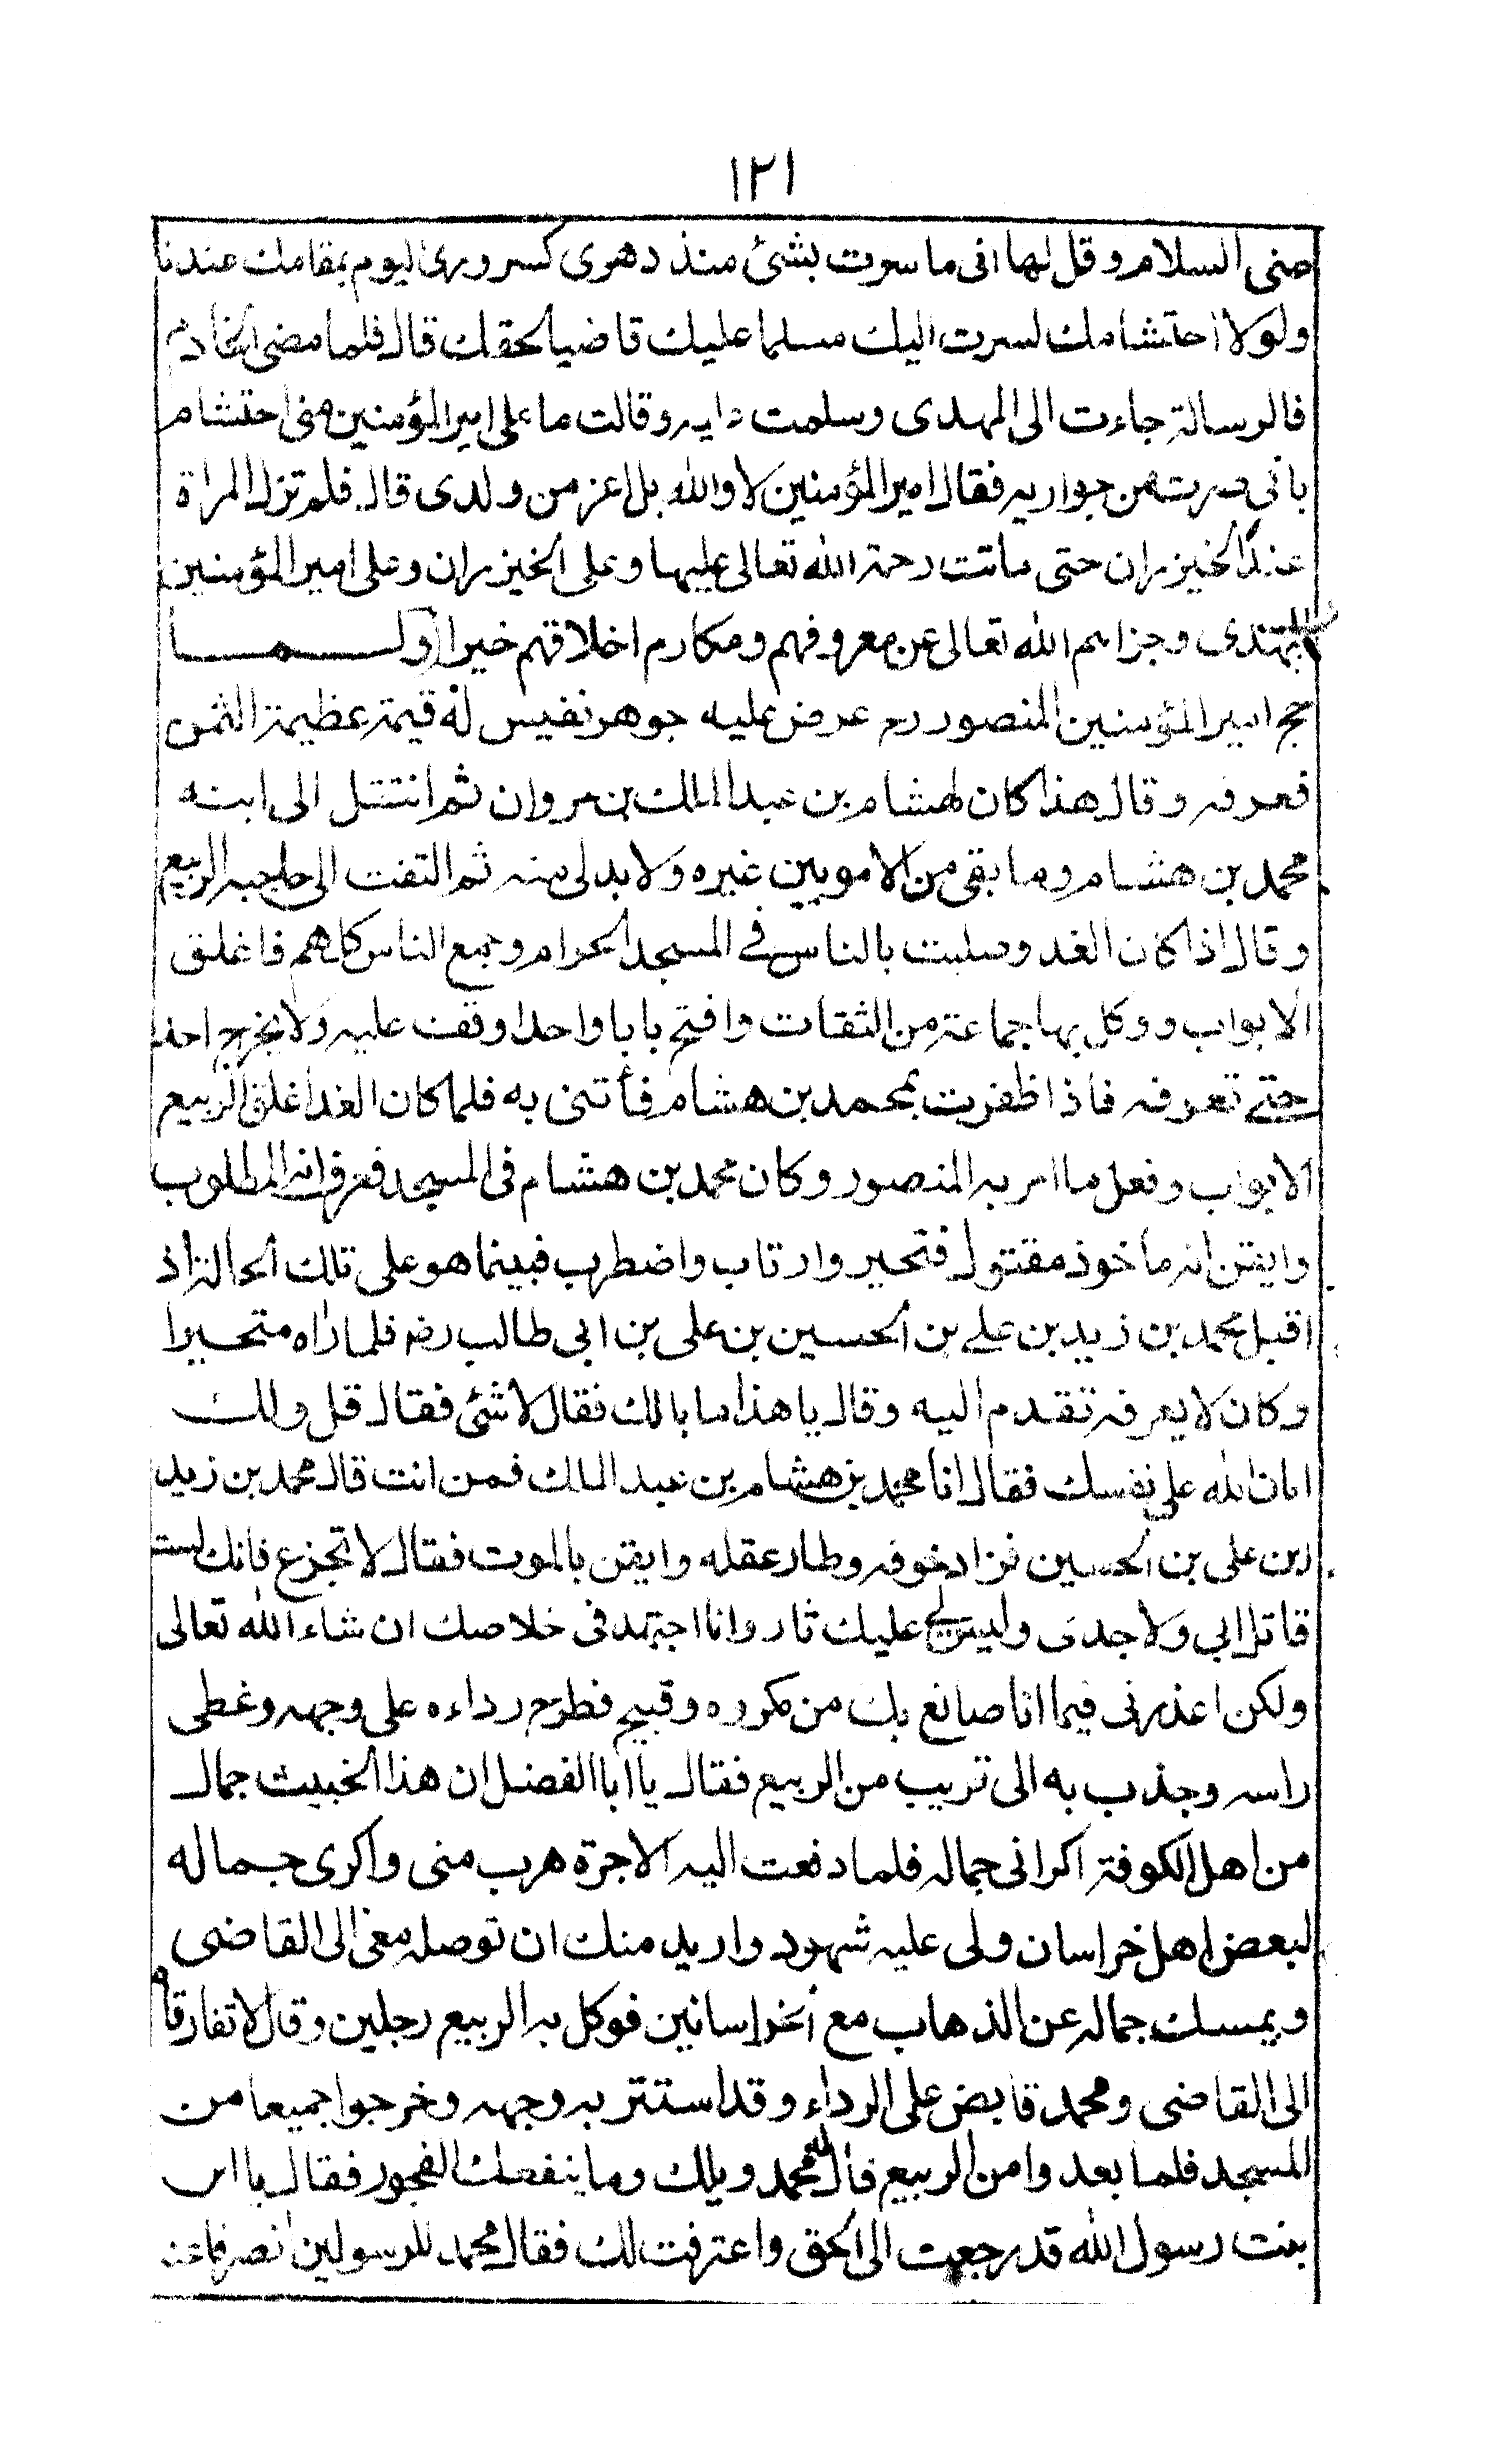 ١٢١
منى السلام وقل لها انى ما سررت بشئ منذ دهرى كسرورى اليوم بمقامك عندنا
ولولا احتشامك لسرت اليك مسلما عليك قاضيا لحقك قال فلما مضى الخادم
فالرسالة جاءت الى المهدى وسلمت عليه وقالت ما على امير المؤمنين منى احتشام
بانى صرت من جواريه فقال امير المؤمنين لا والله بل اعز من ولدى قال فلم تزل المراة
عند الخيزران حتى ماتت رحمة الله تعالى عليها وعلى الخيزران وعلى امير المؤمنين
المهتدى وجزاهم الله تعالى عن معروفهم ومكارم اخلاقهم خيرا ولما
حج امير المؤمنين المنصور رح عرض عليه جوهر نفيس له قيمة عظيمة الثمن
فعرفه وقال هذا كان لهشام بن عبد الملك بن مروان ثم انتقل الى ابنه
محمد بن هشام وما بقى من الامويين غيره ولا بد لى منه ثم التفت الى حاجبه الربيع
وقال اذا كان الغد وصليت بالناس فى المسجد الحرام وجمع الناس كلهم فاغلق
الابواب ووكل بها جماعة من الثقات وافتح بابا واحدا وقف عليه ولا يخرج احد
حتى تعرفه فاذا ظفرت بمحمد بن هشام فأتنى به فلما كان الغد اغلق الربيع
الابواب وفعل ما امر به المنصور وكان محمد بن هشام فى المسجد فعرف انه المطلوب
وايقن انه ماخوذ مقتول فتحير وارتاب واضطرب فبينما هو على تلك الحالة اذ
اقبل محمد بن زيد بن على بن الحسين بن على بن ابى طالب رضه فلما راه متحيرا
وكان لا يعرفه تقدم اليه وقال يا هذا ما بالك فقال لا شئ فقال قل ولك
امان الله على نفسك فقال انا محمد بن هشام بن عبد الملك فمن انت قال محمد بن زيد
ابن على بن الحسين فزاد خوفه وطار عقله وايقن بالموت فقال لا تجزع فانك لست
قاتل ابى ولا جدى وليس لى عليك ثار وانا اجتهد فى خلاصك ان شاء الله تعالى
ولكن اعذرنى فيما انا صانع بك من مكروه وقبيح فطرح رداءه على وجهه وغطى
راسه وجذب به الى قريب من الربيع فقال يا ابا الفضل ان هذا الخبيث جمال
من اهل الكوفة اكرانى جماله فلما دفعت اليه الاجرة هرب منى واكرى جماله
لبعض اهل خراسان ولى عليه شهود واريد منك ان توصله معى الى القاضى
ويمسك جماله عن الذهاب مع الخراسانين فوكل به الربيع رجلين وقال لا تفارقاه
الى القاضى ومحمد قابض على الرداء وقد استتر به وجهه وخرجوا جميعا من
المسجد فلما بعد وامن الربيع قال له محمد ويلك وما ينفعك الفجور فقال يا ابن
بنت رسول الله قد رجعت الى الحق واعترفت لك فقال محمد للرسولين انصرفا عنه